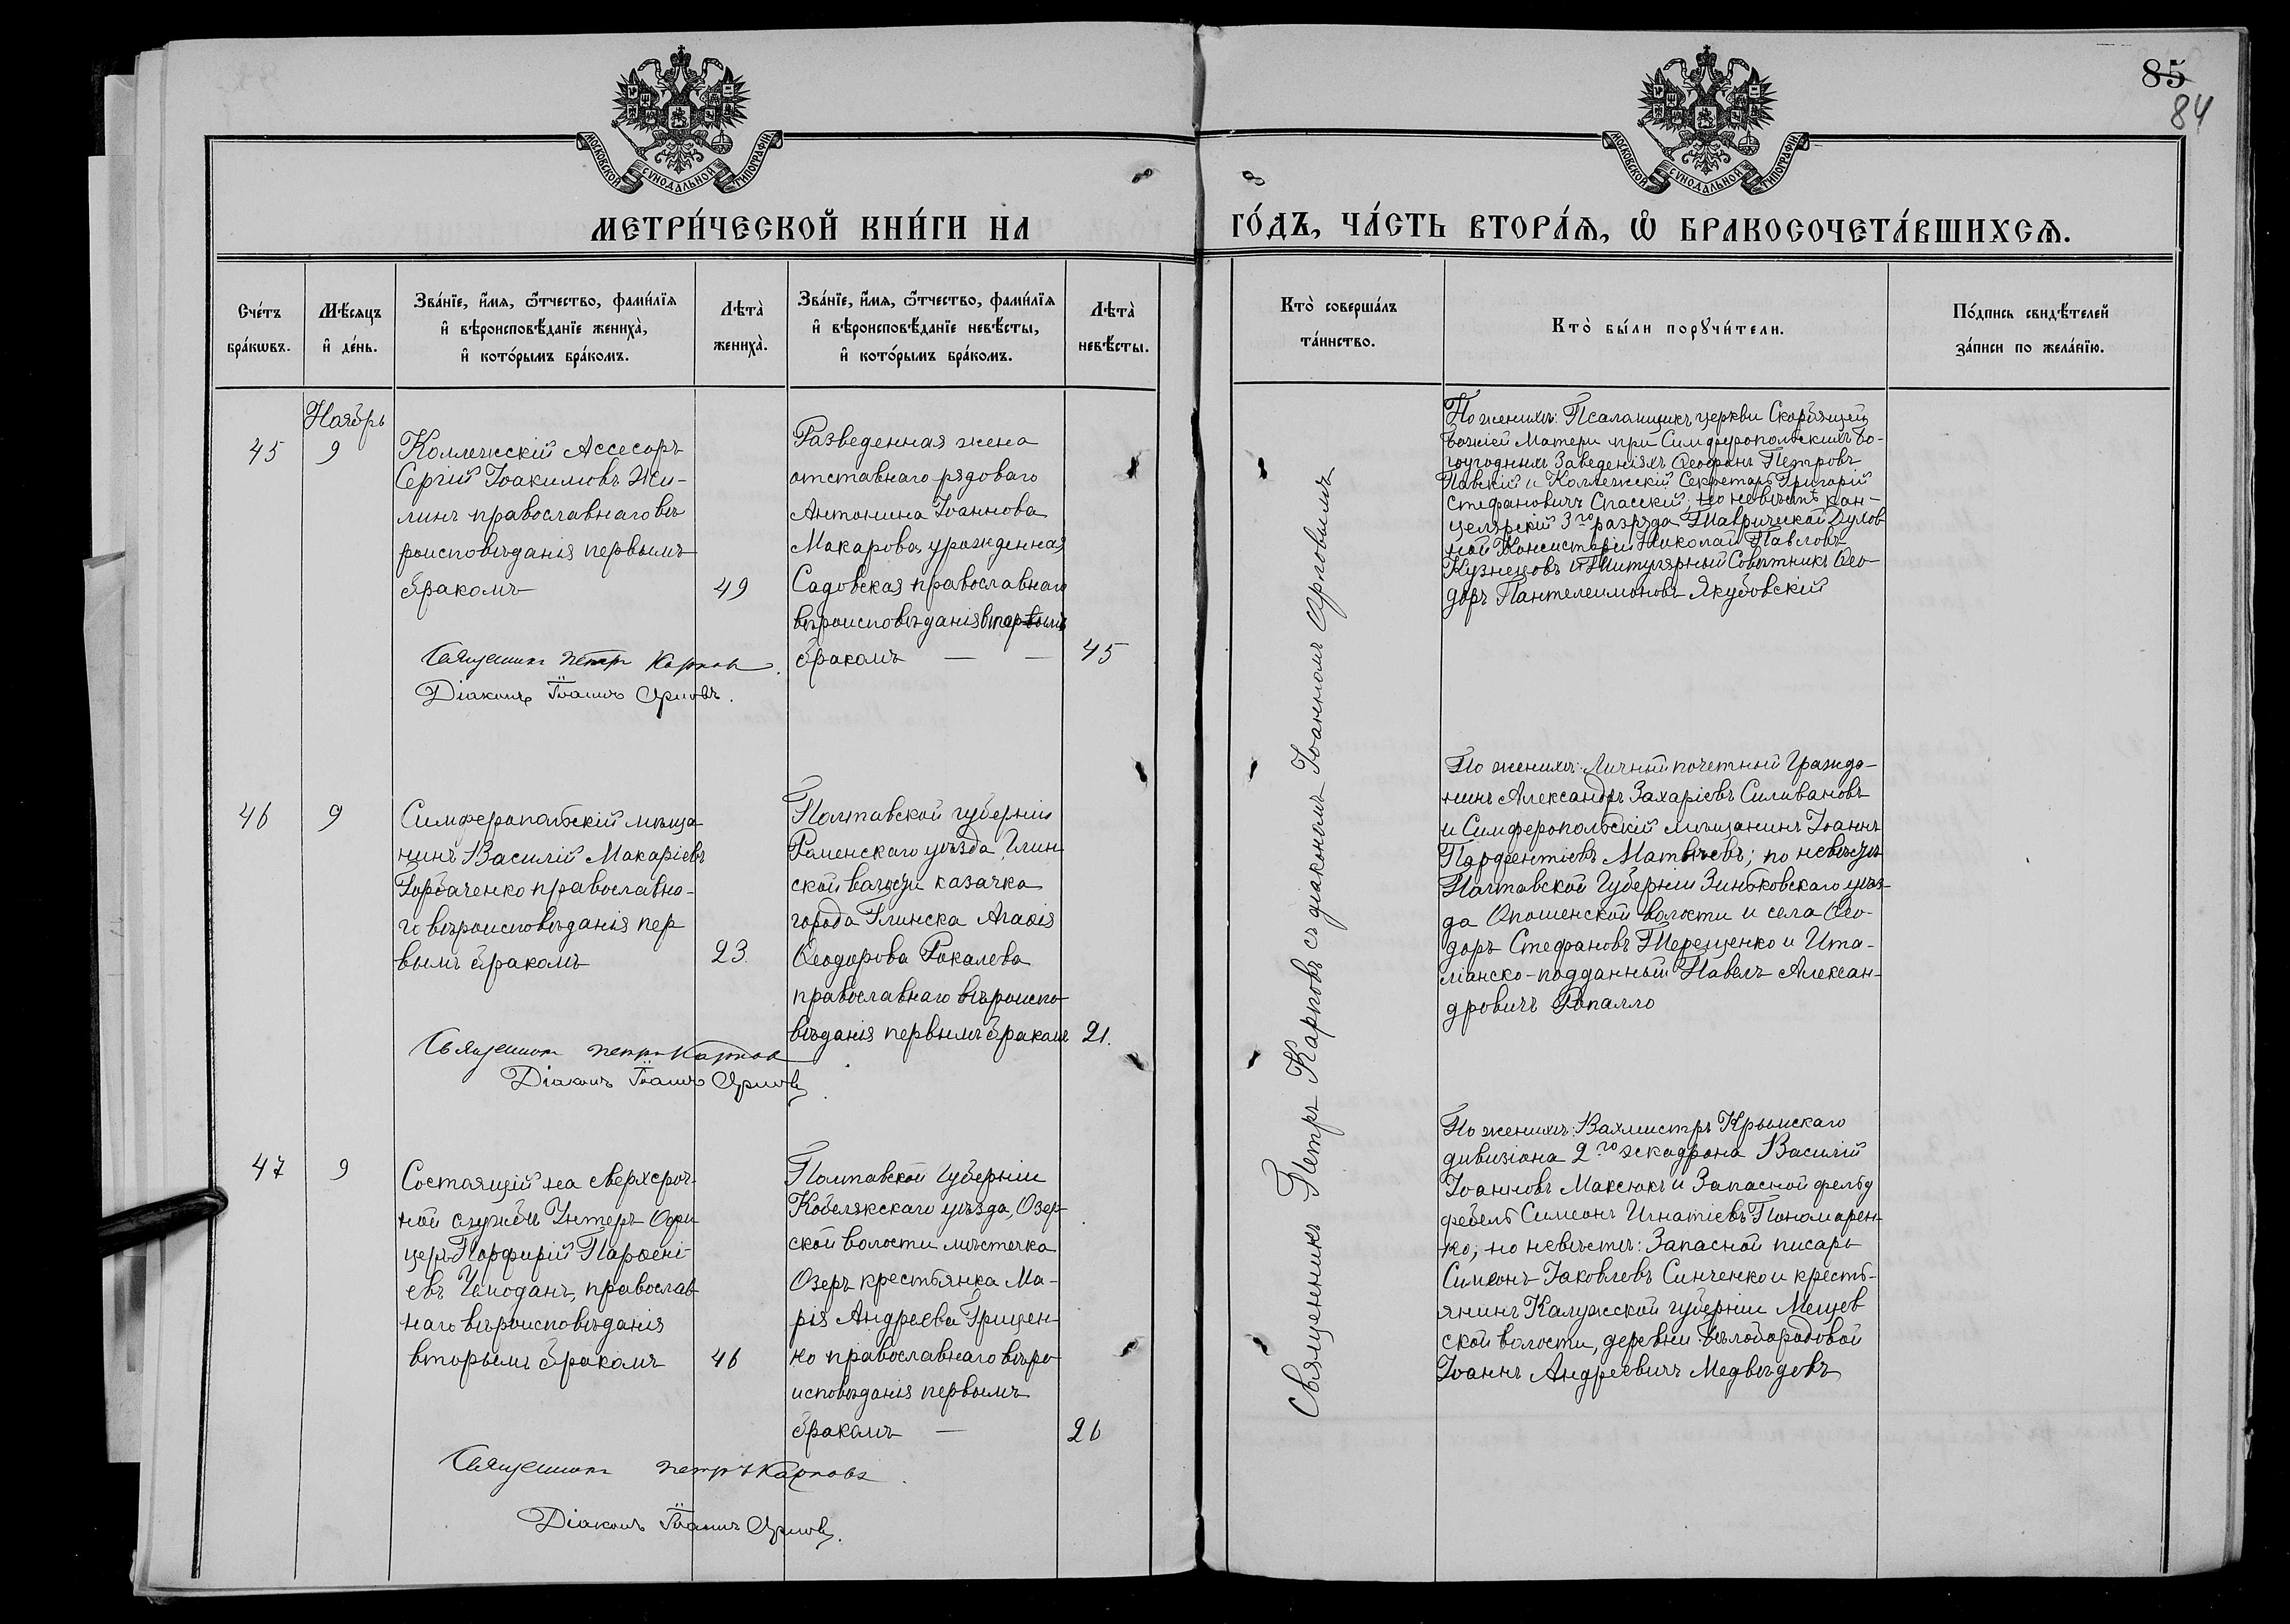 85
84
МОСКОВСКОЙ СѴНОДАЛЬНОЙ ТИПОГРАФІИ
МОСКОВСКОЙ СѴНОДАЛЬНОЙ ТИПОГРАФІИ
МЕТРИ́ЧЕСКОЙ КНИ́ГИ НА ГО́ДЪ, ЧА́СТЬ ВТОРА́Ѧ, Ѽ БРАКОСОЧЕТА́ВШИХСѦ.
Сче́тъ
бра́кѡвъ.
Мѣ́сяцъ
и҆ де́нь.
Зва́нїе, и҆́мя, ѻ҆́тчество, фами́лїя
и҆ вѣроисповѣ́данїе жениха̀,
и҆ кото́рымъ бра́комъ.
Лѣта̀
жениха̀.
Зва́нїе, и҆́мя, ѻ҆́тчество, фами́лїя
и҆ вѣроисповѣ́данїе невѣ́сты,
и҆ кото́рымъ бра́комъ.
Лѣта̀
невѣ́сты.
Кто̀ соверша́лъ
та́инство.
Кто̀ бы́ли порꙋчи́тели.
По́дпись свидѣ́телей
за́писи по жела́нїю.
45
Ноябрь
9
Коллежскій Ассесоръ
Сергій Іоакимовъ Жи-
линъ православнаго вѣ
роисповѣданія первымъ
бракомъ
49
Разведенная жена
отставнаго рядоваго
Антонина Іоаннова
Макарова, урожденная
Садовская православнаго
вѣроисповѣданія вторымъ
бракомъ — —
45
Священникъ Петръ Карповъ.
Діаконъ Іоаннъ Ярповъ.
По женихѣ: Псаломщикъ церкви Скорбящей
Божіей Матери при Симферопольскихъ Бо-
гоугодныхъ Заведеніяхъ Ѳеофанъ Петровъ
Павскій и Коллежскій Секретарь Григорій
Стефановичъ Спасскій; по невѣстѣ кан-
целярскій 3го разряда Таврической Духов
ной Консисторіи Николай Павловъ
Кузнецовъ и Титулярный Совѣтникъ Ѳео-
доръ Пантелеимоновъ Якубовскій
46
9
Симферопольскій мѣща
нинъ Василій Макаріевъ
Горбаченко православна-
го вѣроисповѣданія пер
вымъ бракомъ
23
Полтавской губерніи
Роменскаго уѣзда, Глин
ской волости казачка
города Глинска Агафія
Ѳеодорова Рокалева
православнаго вѣроиспо-
вѣданія первымъ бракомъ
21.
Священникъ Петръ Карповъ
Діаконъ Іоаннъ Ярповъ.
По женихѣ: Личный почетный Гражда-
нинъ Александръ Захаріевъ Силивановъ
и Симферопольскій мѣщанинъ Іоаннъ
Парфентіевъ Матвѣевъ; по невѣстѣ
Полтавской Губерніи Зиньковскаго уѣз-
да Опошенской волости и села Ѳео-
доръ Стефановъ Терещенко и Ита-
ліанско-подданный Павелъ Алексан-
дровичъ Рапалло
47
9
Состоящій на сверхсроч-
ной службѣ Унтеръ-Офи
церъ Порфирій Парѳені-
евъ Чемоданъ, православ-
наго вѣроисповѣданія
вторымъ бракомъ
46
Полтавской Губерніи
Кобелякскаго уѣзда, Озер-
ской волости мѣстечка
Озеръ крестьянка Ма-
рія Андреева Грищен-
ко православнаго вѣро-
исповѣданія первымъ
бракомъ —
26
Священникъ Петръ Карповъ.
Діаконъ Іоаннъ Ярповъ.
По женихѣ: Вахмистръ Крымскаго
дивизіона 2го эскадрона Василій
Іоанновъ Максюкъ и Запасной фельд
фебель Симеонъ Игнатіевъ Пономарен-
ко; по невѣстѣ: Запасной писарь
Симеонъ Іаковлевъ Синченко и кресть-
янинъ Калужской губерніи Мещев
ской волости, деревни
Іоаннъ Андреевичъ Медвѣдевъ
Священникъ Петръ Карповъ съ діакономъ Іоанномъ Ярповымъ